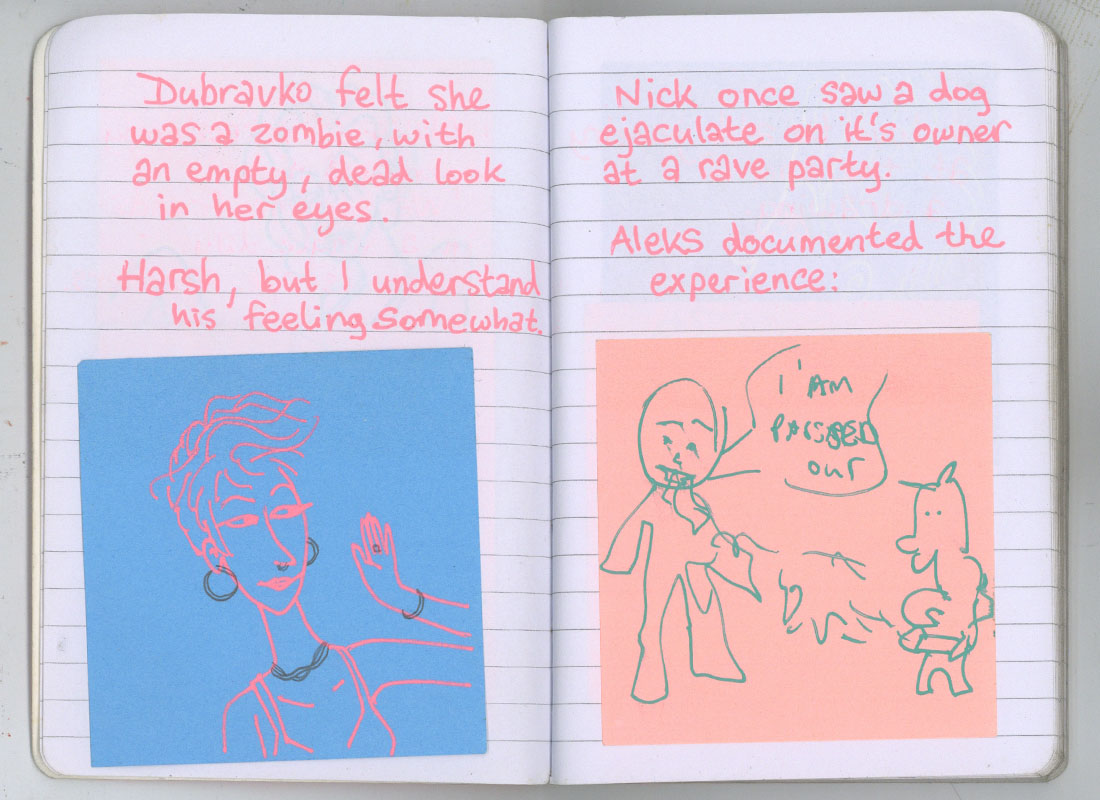 Dubravko felt she
was a zombie, with
an empty, dead look
in her eyes.
Harsh, but I understand
his feeling somewhat.
Nick once saw a dog
ejaculate on it's owner
at a rave party.
Aleks documented the
experience:
I'AM
our